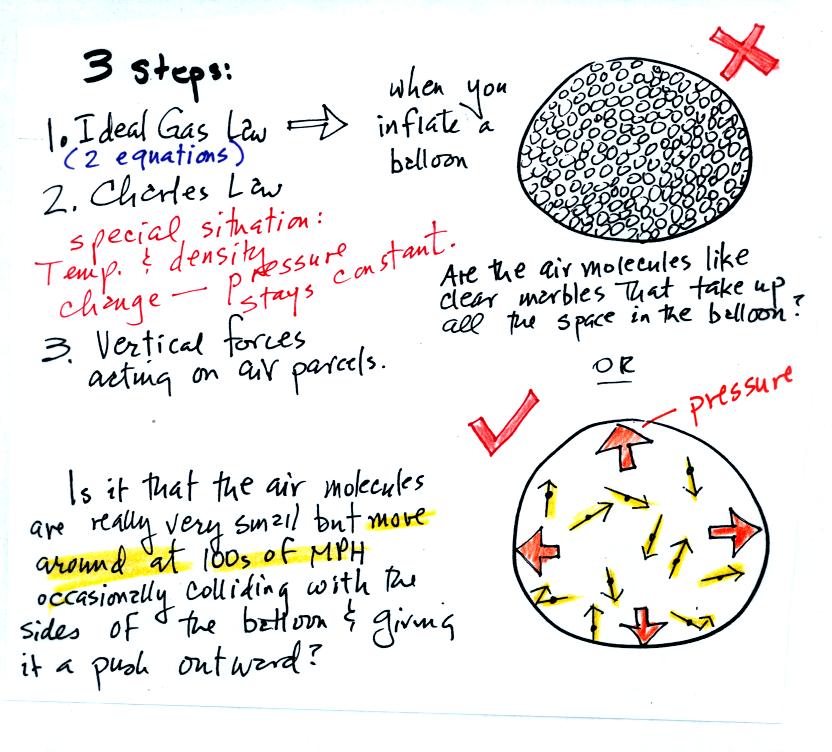 3 steps:
1. Ideal Gas Law ⇨
(2 equations)
when you
inflate a
balloon
2. Charles Law
special situation:
Temp. & density
change — pressure
stays constant.
3. Vertical forces
acting on air parcels.
Are the air molecules like
clear marbles that take up
all the space in the balloon?
OR
pressure
Is it that the air molecules
are really very small but move
around at 100s of MPH
occasionally colliding with the
sides of the balloon & giving
it a push outward?